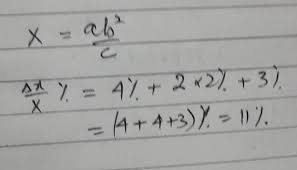 x = ab²/c
Δx/x % = 4% + 2×2% + 3%
= (4+4+3)% = 11%